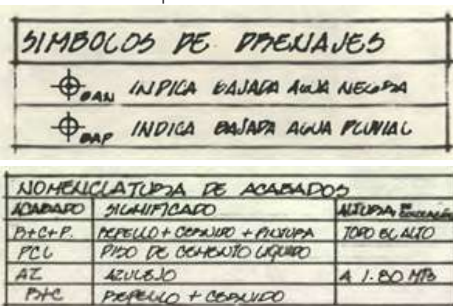 SIMBOLOS DE DRENAJES
BAN INDICA BAJADA AGUA NEGRA
BAP INDICA BAJADA AGUA PLUVIAL
NOMENCLATURA DE ACABADOS
ACABADO SIGNIFICADO ALTURA DE COLOCACIÓN
R+C+P. REPELLO + CERNIDO + PINTURA TODO EL ALTO
PCL PISO DE CEMENTO LIQUIDO
AZ AZULEJO A 1.80 MTS
R+C REPELLO + CERNIDO